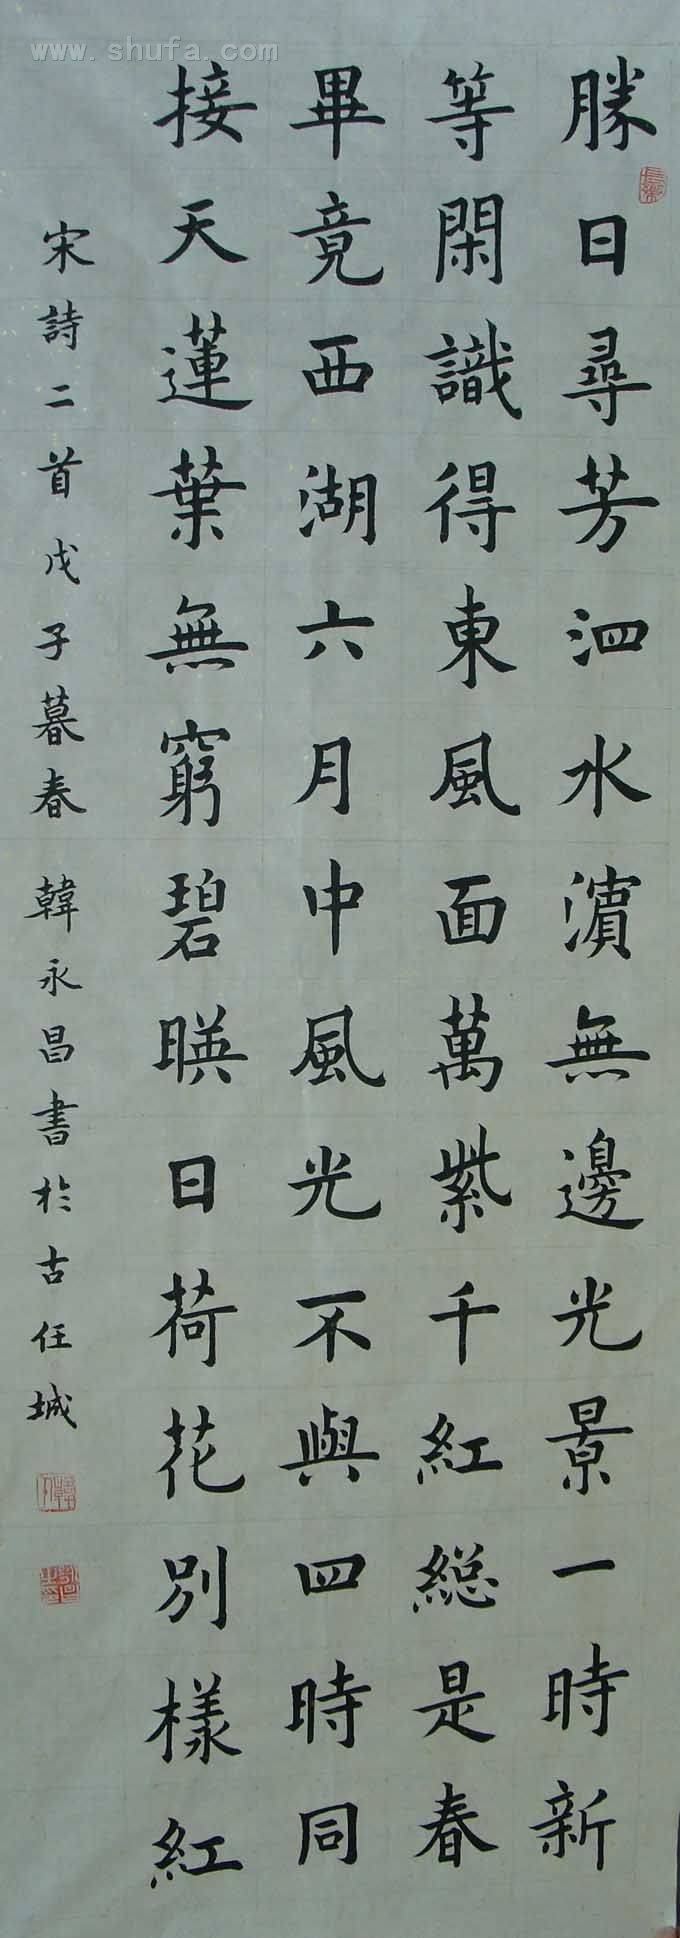 www.shufa.com
勝日尋芳泗水濱無邊光景一時新
等閑識得東風面萬紫千紅総是春
畢竟西湖六月中風光不與四時同
接天蓮葉無窮碧暎日荷花別樣紅
宋詩二首戊子暮春 韓永昌書於古任城